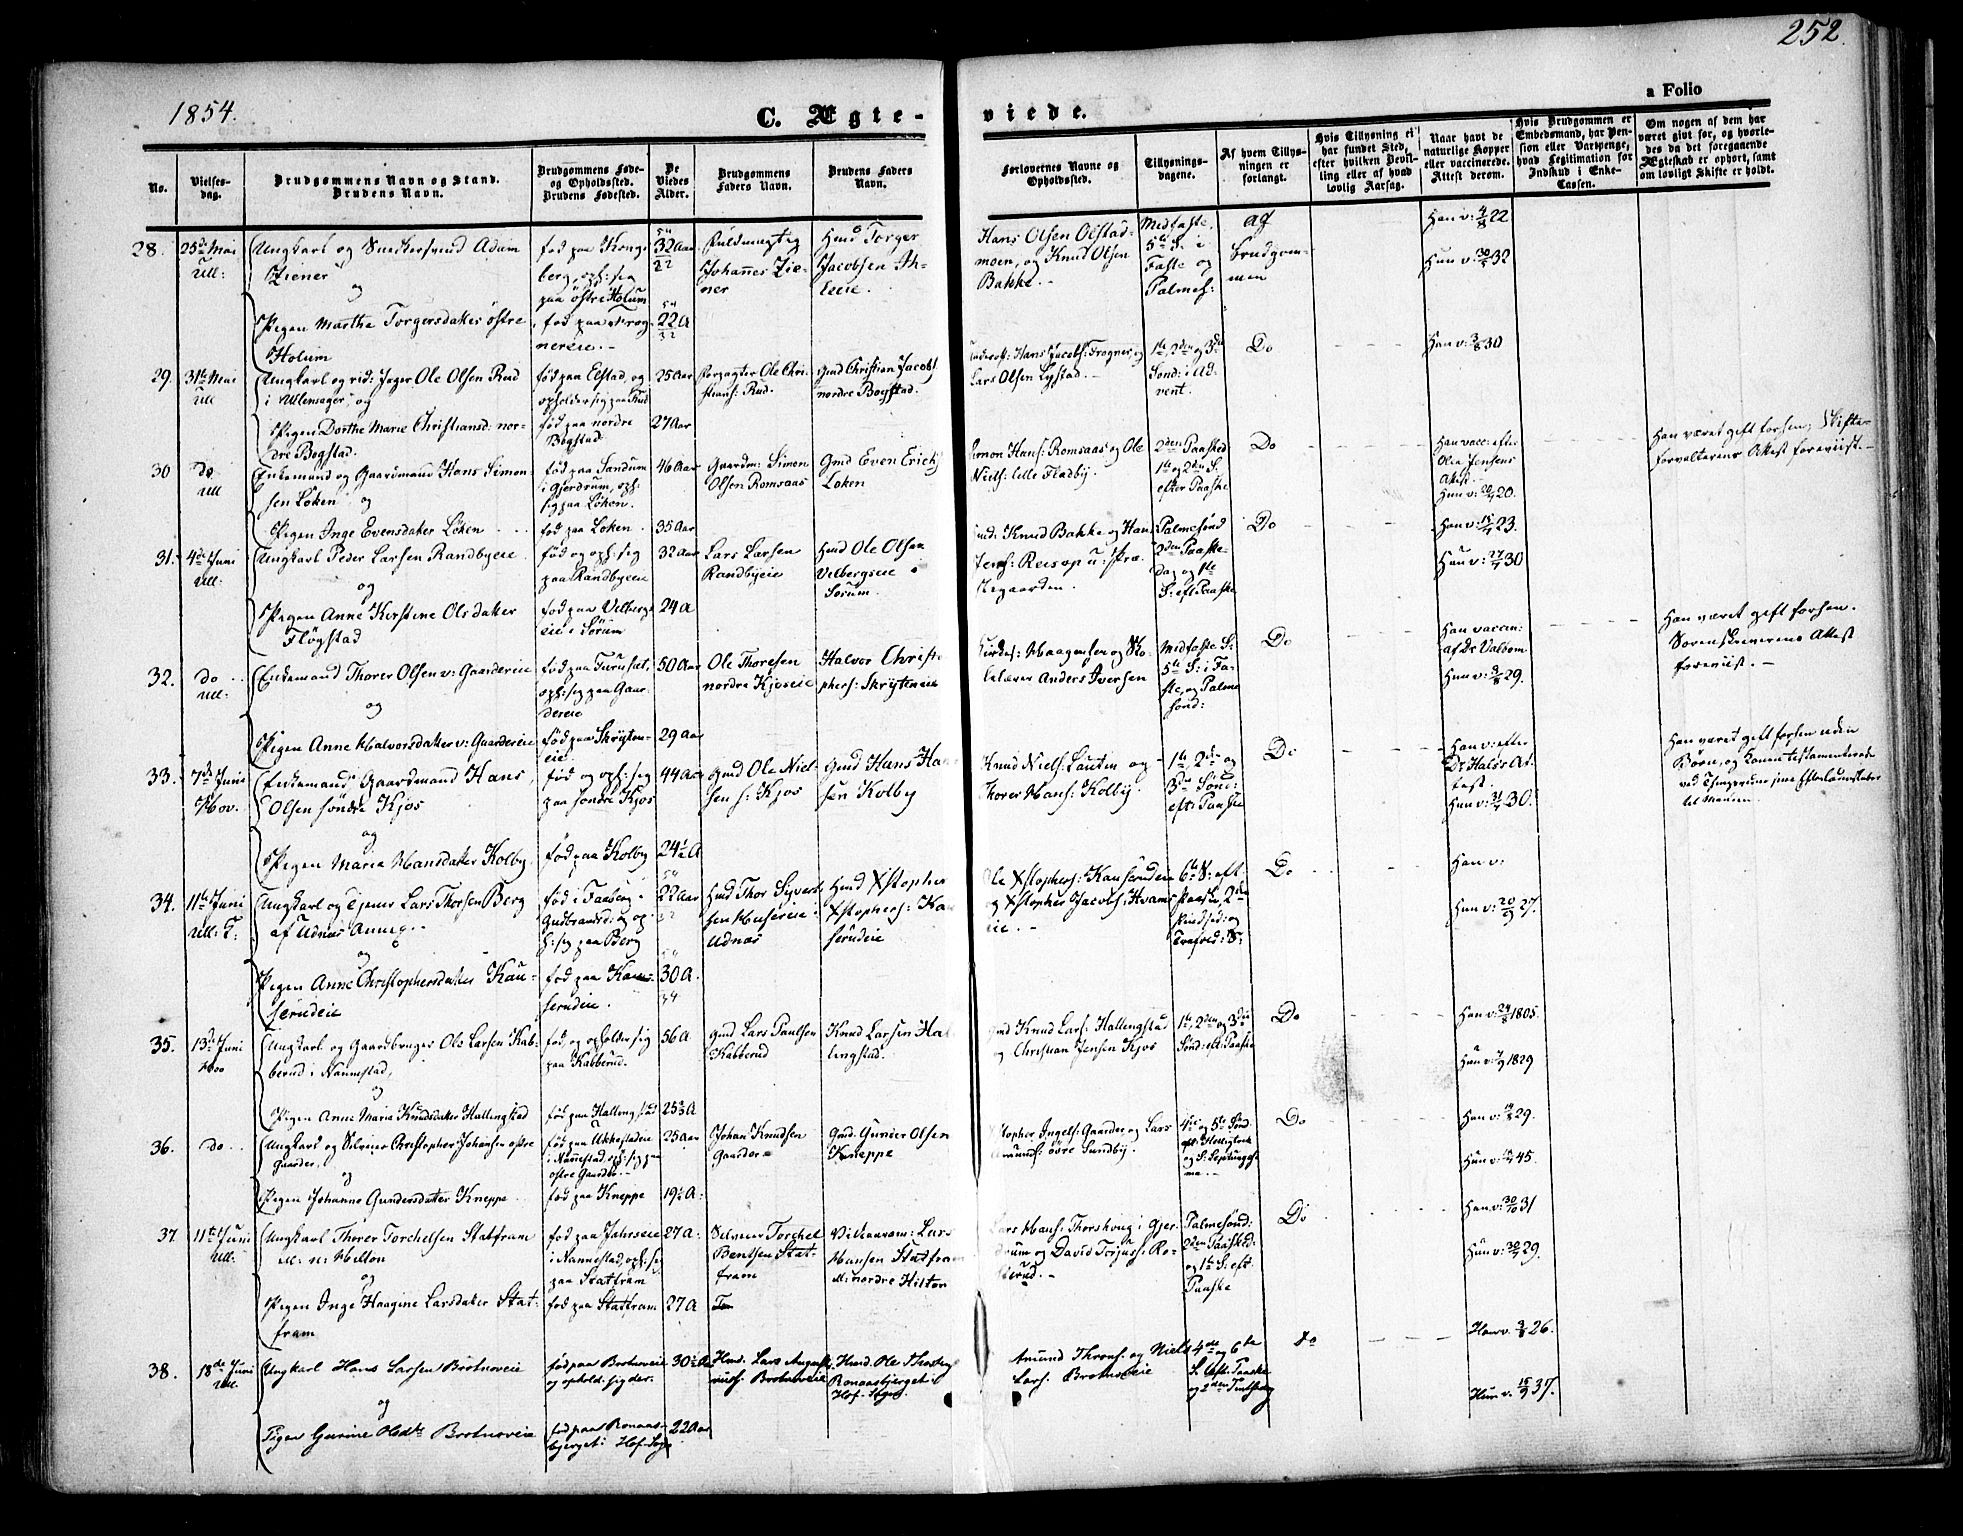 252.
1854.
C. Ægte-
viede.
a Folio
No.
Vielses-
dag.
Brudgommens Navn og Stand.
Brudens Navn.
Brudgommens Føde-
og Opholdssted.
Brudens Fødested.
De
Viedes
Alder.
Brudgommens
Faders Navn.
Brudens Faders
Navn.
Forlovernes Navne og
Opholdssted.
Tillysnings-
dagene.
Af hvem Tillys-
ningen er
forlangt.
Hvis Tillysning ei
har fundet Sted,
efter hvilken Bevil-
ling eller af hvad
lovlig Aarsag.
Naar havt de
naturlige Kopper
eller vaccinerede.
Attest derom.
Hvis Brudgommen er
Embedsmand, har Pen-
sion eller Vartpenge,
hvad Legitimation for
Indskud i Enke-
Cassen.
Om nogen af dem har
været gift før, og hvorle-
des da det foregaaende
Ægteskab er ophørt, samt
om lovligt Skifte er holdt.
28.
25de Mai
Ull:
Ungkarl og Snekkersvend Adam
Ziener
og
Pigen Marthe Torgersdatter østre
Holum
fød paa Kongs
berg, oph: sig
paa østre Holum
fød paa Frog-
nereie.
32 Aar
22 A
Fuldmægtig
Johannes Zie-
ner
Hmd Torger
Jacobsen
Hans Olsen Olstad-
moen, og Knud Olsen
Bakke.
Midfaste,
5te S. i
Faste og
Palmes:
Af
Brudgom-
men
Han v: 4/8 22
Hun v: 30/5 32
29.
31te Mai
Ull
Ungkarl og rid: Jæger Ole Olsen Rud
i Ullensager, og
Pigen Dorthe Marie Christiansd: nor-
dre Bogstad.
fød paa Elstad, og
opholder sig paa Rud
fød paa nordre
Bogstad
25 Aar
27 Aar
Forpagter Ole Chri-
stians: Rud.
Gmd Christian Jacobs:
nordre Bogstad.
Hans Jacobs: Frogner, og
Lars Olsen Lystad.
1te, 2den og 3de
Sønd: i Ad-
vent.
Do
Han v: 3/8 30
30
do
Ull
Enkemand og Gaardmand Hans Simon-
sen Løken
og
Pigen Inge Evensdatter Løken
fød paa Sandum
i Gjerdrum, oph:
sig paa Løken.
fød paa Løken
46 Aar
35 Aar
Gaardm: Simon
Olsen Romsaas
Gmd Even Erichs:
Løken
Simon Hans: Romsaas og Ole
Niels: lille Fladby.
2den Paasked
1te og 2den S.
efter Paaske
Do
Han vacc: efter
Ole Jensens
Attest.
Hun v: 20/7 20.
Han været gift forhen, Skifte-
forvalterens Attest foreviist.
31.
4de Juni
Ull:
Ungkarl Peder Larsen Randbyeie
og
Pigen Anne Kirstine Olsdatter
Fløgstad
fød og oph: sig
paa Randbyeie
fød paa Velbergs
eie i Sørum
32 Aar
24 A
Lars Larsen
Randbyeie
Hmd Ole Olsen
Velbergseie i
Sørum.
Knud Bakke og Hans
Jens: Reisop u: Præ-
stegaarden.
Palmesønd
2den Paaske-
dag og 1te
S: eft Paaske
Do
Han v: 15/7 23.
Hun v: 27/7 30
32.
do
Ull:
Enkemand Thorer Olsen v: Gaardereie
og
Pigen Anne Halvorsdatter v: Gaardereie
fød paa Furuset,
oph: sig paa Gaar-
dereie
fød paa Skrytten-
eie.
50 Aar
29 Aar
Ole Thoresen
nordre Kjoseie
Halvor Christo-
phers: Skrytteneie
Haagensen og Sko-
lelærer Anders Iversen
Midfaste S:
5te S: i Fa-
ste, og Palme
sønd:
Do
Han vaccin:
af Dr Valbom
Hun v: 5/8 29.
Han været gift forhen.
Sorenskriverens Attest
foreviist.
33.
7de Juni
Hov.
Enkemand, Gaardmand Hans
Olsen søndre Kjos
og
Pigen Maria Hansdatter Kolby
fød og oph: sig
paa søndre Kjos
fød paa Kolby
44 Aar
24½ A
Gmd Ole Niel-
sen s: Kjos
Gmd Hans Han-
sen Kolby
Knud Niels: Lautin og
Thorer Hans: Kolby.
1te, 2den og
3die Sønd:
eft: Paaske
Do
Han v: efter
Dr Halds At-
test.
Hun v: 31/7 30.
Han været gift forhen uden
Børn, og Konen testamenterede
til Manden.
34.
11te Juni
Ull: T:
Ungkarl og Tjener Lars Thorsen Berg
af Udnæs Annex.
og
Pigen Anne Christophersdatter Kau-
serudeie
fød i Faaberg i
Gudbrandsd: og op-
h: sig paa Berg
fød paa Kau-
serudeie.
22 Aar
30 A.
Hmd Thor Syvers
sen Huserei i
Udnæs
Hmd Xstopher
Xstophers: Kau
serudeie
Ole Xstophers: Kauserudeie
og Xstopher Jacobs: Kvams
eie.
6te S: eft.
Paaske, 2den
Pindsed: og
Trefold: S:
Do
Han v:
Hun v: 20/9 27.
35.
13de Juni
Hov
Ungkarl og Gaardbruger Ole Larsen Kab-
berud i Nannestad,
og
Pigen Anne Maria Knudsdatter Hallingstad
fød, og opholder sig
paa Kabberud.
fød paa Hallingstad
56 A
Gmd Lars Paulsen
Kabberud
Knud Larsen Hal-
lingstad.
Gmd Knud Lars: Hallingstad
og Christian Jensen Kjos
1te, 2den og 3die
Sønd: eft: Paaske
Do
Han v: 24/8 1805.
Hun v: 7/9 1829
36.
do
Ungkarl og Selveier Christopher Johansen østre
Gaarder,
og
Pigen Johanne Gundersdatter Kneppe
fød paa Ukkestadeie
i Nannestad, oph: sig paa
østre Gaarder.
fød paa Kneppe
25 Aar
19½ A.
Johan Knudsen
Gaarder
Gmd. Gunder Olsen
Kneppe
Xstopher Ingels: Gaarder og Lars
Amunds: øvre Sundby.
4de og 5te Sønd
eft: Helligtrek
og S: Septuagesi
ma
Do
Han v: 14/8 29.
Hun v: 45.
37
11te Juni
Ull:
Ungkarl Thorer Torchelsen Statfram
u: n: Hilton
og
Pigen Inge Haagine Larsdatter Stat-
fram
fød paa Jahrseie
i Nannestad, oph: sig
paa Statfram
fød paa Statfram
27 A.
27 A
Selveier Torchel
Bentsen Stat-
fram
Lars
Hansen Statfram
u: nordre Hilton
Lars Hans: Thorshoug i Gjer-
drum og David Terjus: Ro-
Palmesønd:
2den Paasked:
og 1te S: eft.
Paaske
Do
Han v: 30/10 31
Hun v: 30/7 29.
38.
18de Juni
Ull.
Ungkarl Hans Larsen Brotnoveie
og
Pigen Gurine Olsdtr Brotnoveie
fød paa Brotnoveie
og ophold. sig der.
fød paa Ronaas-
bjerget i Hof-Sogn
30½ A
22 Aar
Hmd. Lars August-
inus: Brotnoveie
Hmd. Ole Thostens
Ronaasbjerget i
Hof-Sogn
Amund Throns: og Niels
Lars: Brotnoveie
4de og 6te
S. eft: Paaske
og 2den Pintsdag
do
Han v. 3/8 26.
Hun v. 15/9 37.